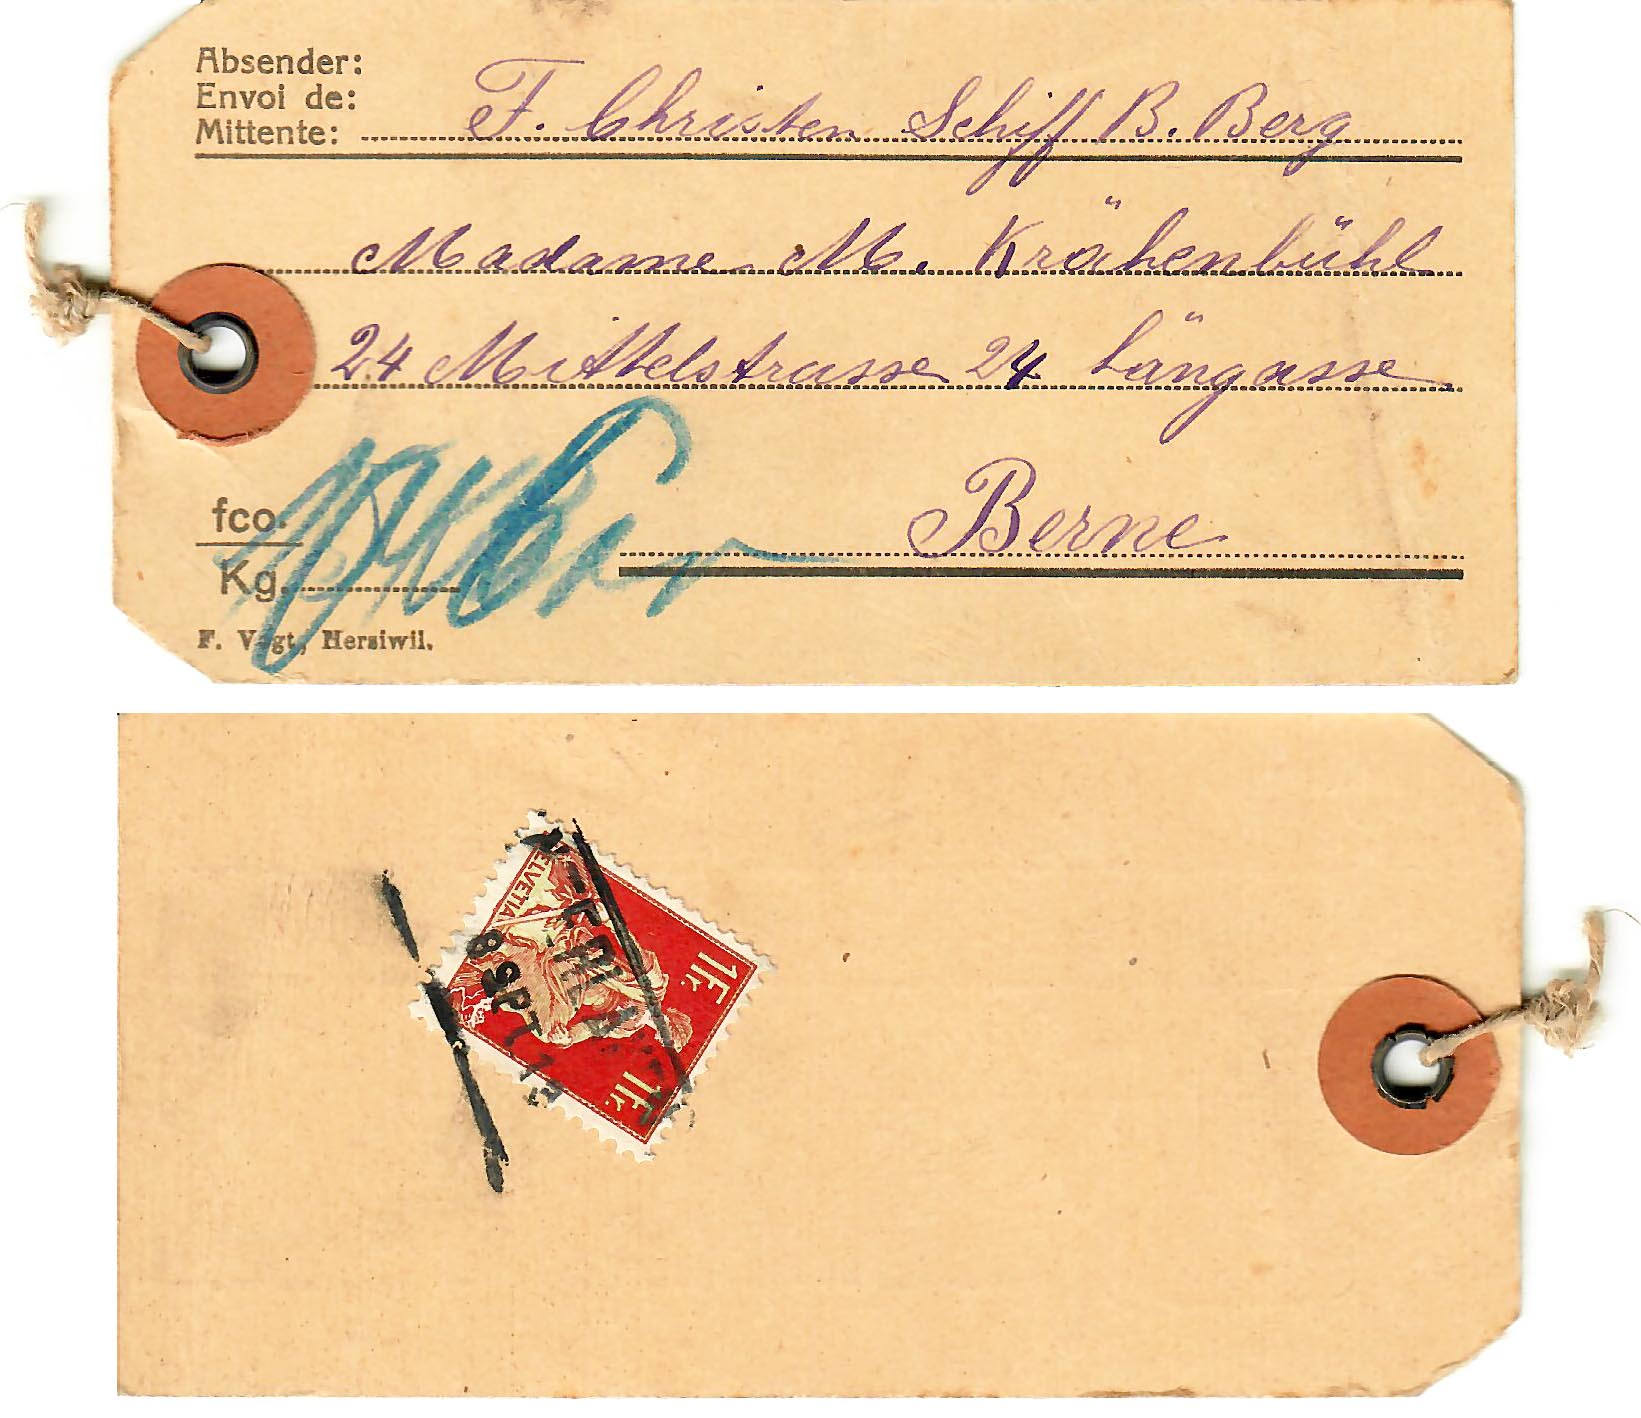 Absender:
Envoi de:
Mittente: F. Christen Schiff B. Berg
Madame M. Krähenbühl
24 Mittelstrasse 24 Längasse
Berne
fco.
Kg.
F. Vogt, Hersiwil.
HELVETIA
1 Fr.
1 Fr.